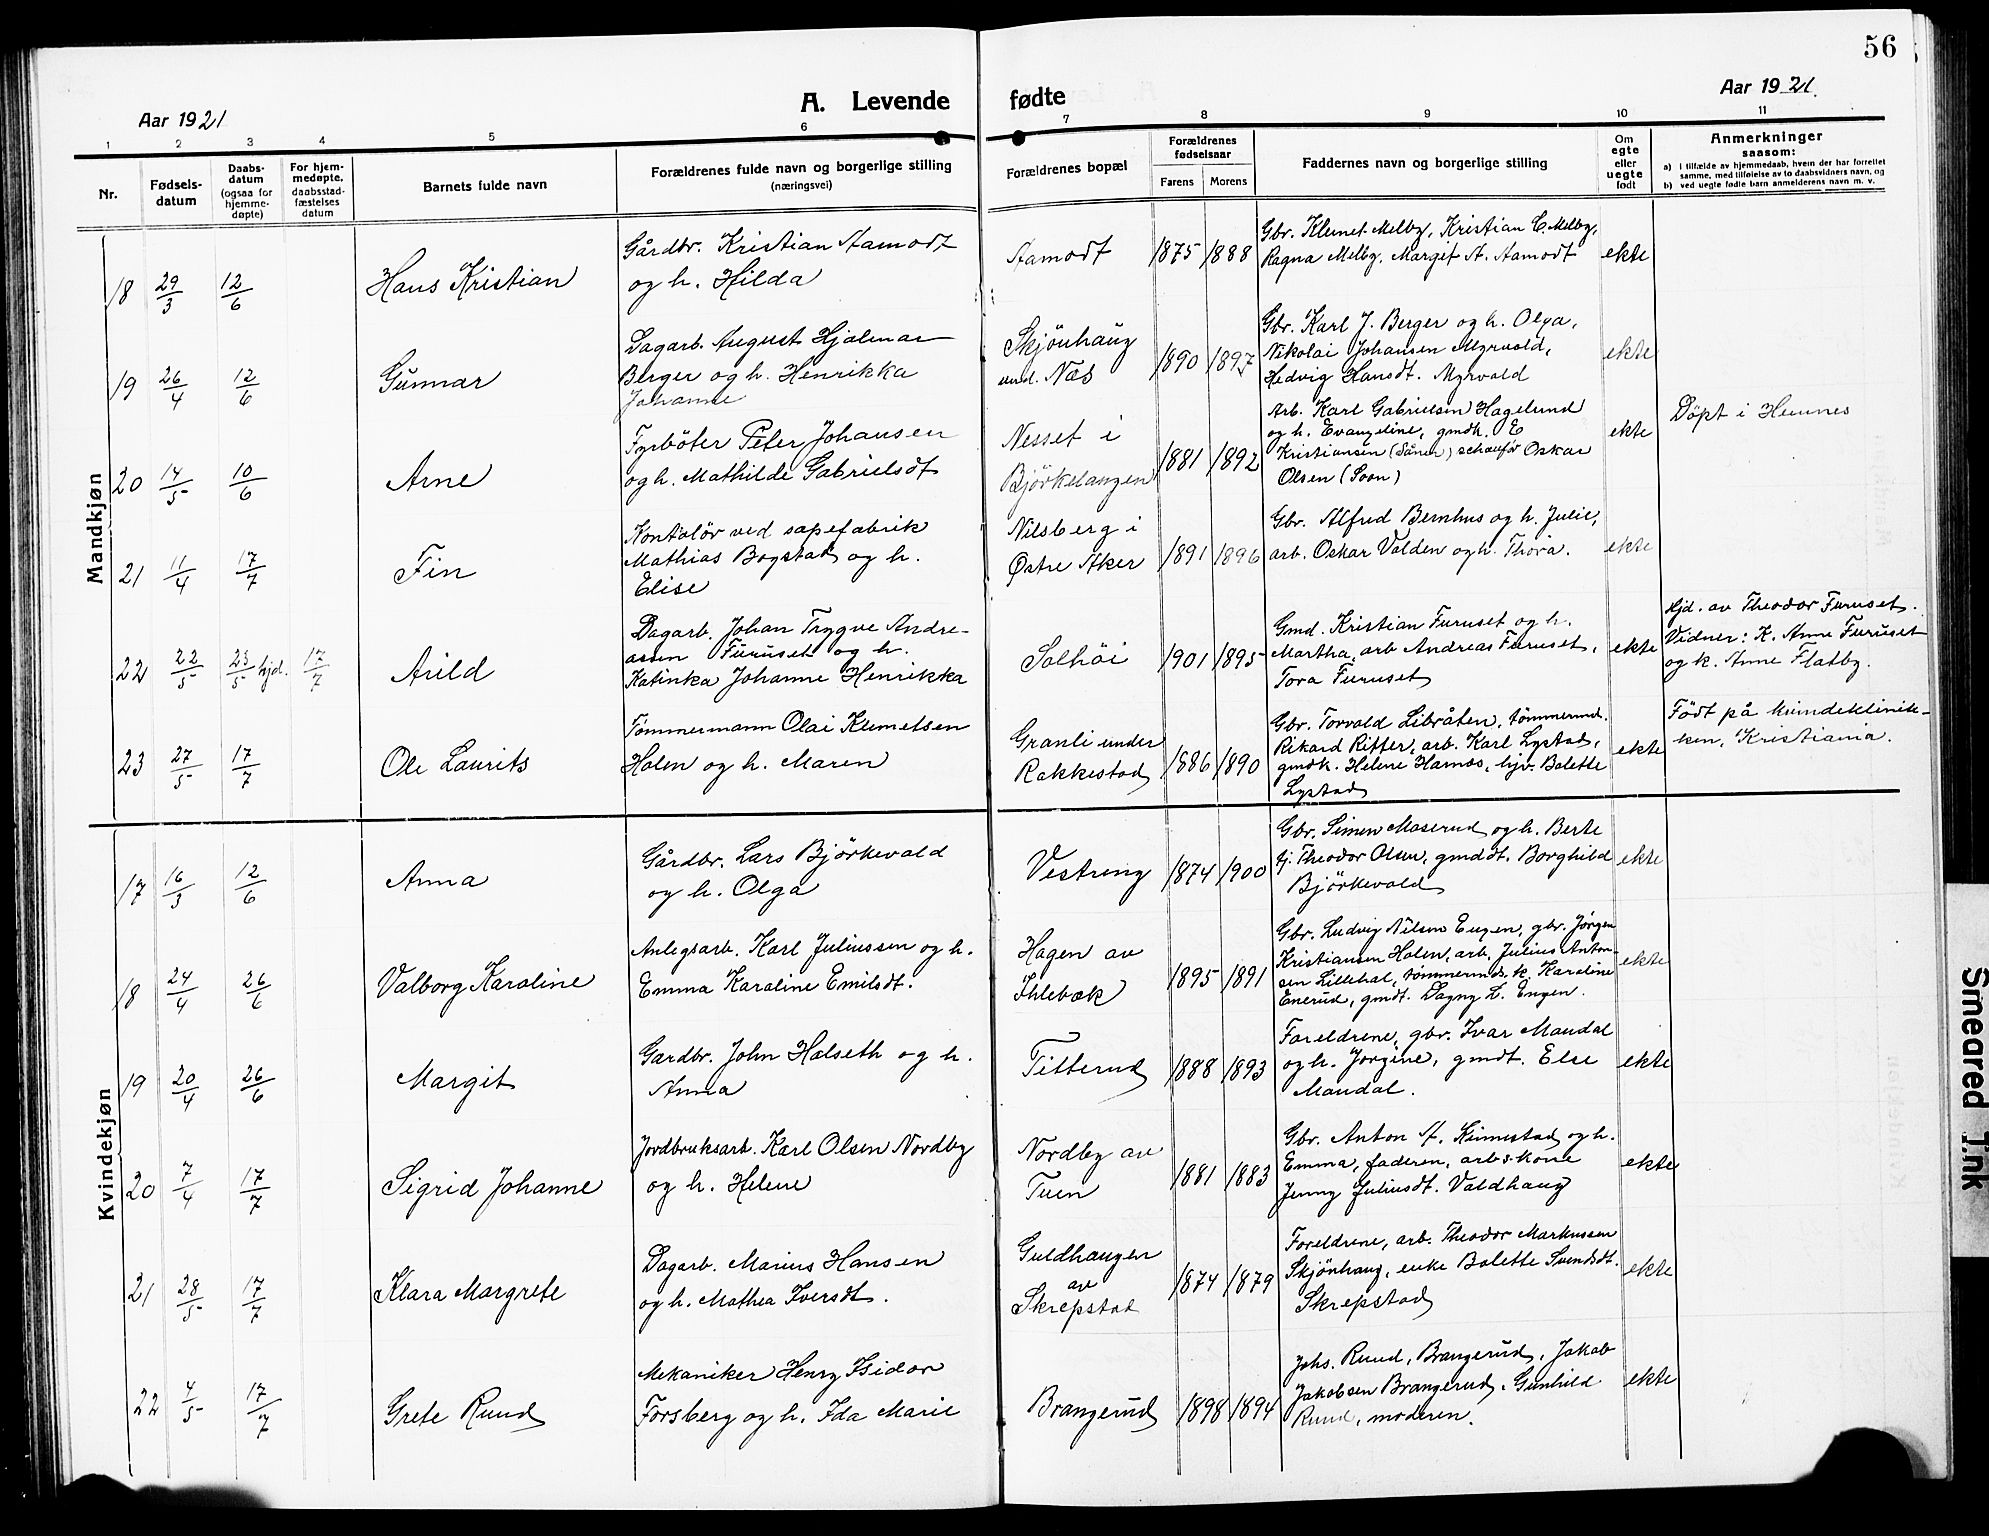 56
Aar 1921
A. Levende fødte
Aar 1921.
1 2 3 4 5 6 7 8 9 10 11
Nr.
Fødsels-
datum
Daabs-
datum
(ogsaa for
hjemme-
døpte)
For hjem-
medøpte,
daabsstad-
fæstelses
datum
Barnets fulde navn
Forældrenes fulde navn og borgerlige stilling
(næringsvei)
Forældrenes bopæl
Forældrenes
fødselsaar
Farens
Morens
Faddernes navn og borgerlige stilling
Om
egte
eller
uegte
født
Anmerkninger
saasom:
a) i tilfælde av hjemmedaab, hvem der har forrettet
samme, med tilføielse av to daabsvidners navn, og
b) ved uegte fødte barn anmelderens navn m. v.
Mandkjøn
18 29/3 12/6 Hans Kristian
Gårdbr. Kristian Aamodt
og h. Hilda
Aamodt
1875 1888
Gbr. Klemet Melby, Kristian C. Melby,
Ragna Melby, Margit A. Aamodt
ekte
19 26/4 12/6 Gunnar
Dagarb. August Hjalmar
Berger og h. Henrikka
Johanne
Skjönhaug
und. Næs
1890 1897
Gbr. Karl J. Berger og h. Olga,
Nikolai Johansen Myrvold,
Hedvig Hansdt. Myrvold
ekte
20 14/5 10/6 Arne
Fyrböter Peter Johansen
og h. Mathilde Gabrielsdt
Nesset i
Björkelangen
1881 1892
Arb. Karl Gabrielsen Hagelund
og h. Evangeline, gmdk. E
Kristiansen (Såner) schaufør Oskar
Olsen (Soon)
ekte
Döpt i Hemnes
21 11/4 17/7 Fin
Kontolör ved sæpefabrik
Mathias Bogstad og h.
Elise
Nilsberg i
Østre Aker
1891 1896
Gbr. Alfred Bernhus og h. Julie,
arb. Oskar Volden og h. Thora.
ekte
22 22/5 23/5 hjd. 17/7 Arild
Dagarb. Johan Trygve Andre-
assen Furuset og h.
Katinka Johanne Henrikka
Solhöi
1901 1895
Gmd. Kristian Furuset og h.
Martha, arb Andreas Furuset,
Tora Furuset
ekte
Hjd. av Theodor Furuset.
Vidner: K. Anne Furuset
og k. Anne Flatby.
23 27/5 17/7 Ole Laurits
Tømmermann Olai Klemetsen
Holen og h. Maren
Granli under
Rakkestad
1886 1890
Gbr. Torvald Libråten, tömmermd.
Rikard Ritter, arb. Karl Lystad,
gmdk. Helene Harnæs, hjv. Bolette
Lystad
ekte
Født på kvindeklinik-
ken, Kristiania.
Kvindekjøn
17 16/3 12/6 Anna
Gårdbr. Lars Björkevald
og h. Olga
Vestreng
1874 1900
Gbr. Simen Moserud og h. Berte
tj. Theodor Olsen, gmddt. Borghild
Björkevold
ekte
18 24/4 26/6 Valborg Karoline
Anlegsarb. Karl Juliussen og h.
Emma Karoline Emilsdt.
Hagen av
Ihlebæk
1895 1891
Gbr. Ludvig Nilsen Engen, gbr. Jörgen
Kristiansen Holen, arb. Julius Anton-
sen Lillehol, tömmermds. k. Karoline
Enerud, gmdt. Dagny L. Engen.
ekte
19 20/4 26/6 Margit
Gardbr. John Halseth og h.
Anna
Titterud
1888 1893
Foreldrene, gbr. Ivar Mandal
og h. Jorgine, gmdt. Else
Mandal.
ekte
20 7/4 17/7 Sigrid Johanne
Jordbruksarb. Karl Olsen Nordby
og h. Helene
Nordby av
Tuen
1881 1883
Gbr. Anton A. Kinnestad og h.
Emma, faderen, arbskone
Jenny Juliusdt. Voldhaug
ekte
21 28/5 17/7 Klara Margrete
Dagarb. Marius Hansen
og h. Mathea Iversdt.
Guldhaugen
av
Skrepstad
1874 1879
Foreldrene, arb. Theodor Markussen
Skjönhaug, enke Bolette Svendsdt.
Skrepstad
ekte
22 4/5 17/7 Grete Ruud
Mekaniker Henry Isidor
Forsberg og h. Ida Marie
Brangerud
1898 1894
Johs. Ruud, Brangerud, Jakob
Jakobsen Brangerud, Gunhild
Ruud, moderen.
ekte
Smeared Ink